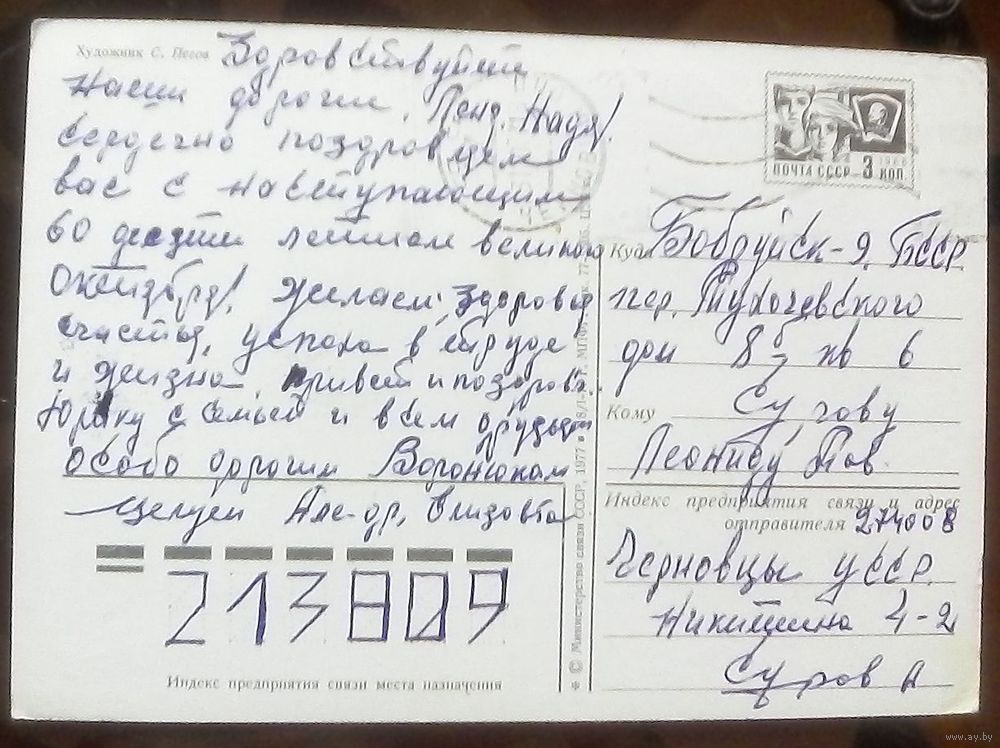 Художник С. Песов
Здоровствуйте
Наши дорогие, Леня, Надя!
Сердечно поздровляем
вас с наступающим
60 десяти летием великого
Октября! Желаем, здоровья
счастья, успеха в труде
и жизна, привет и поздровл.
Юрику с семьей и всем друзьям
особо дорогим Воронюкам
Целуем Але-др, Елизовета
213809
Индекс предприятия связи места назначения
© Министерство связи СССР, 1977
ПОЧТА СССР 3 КОП.
1966
Куда Бобруйск-9. БССР
пер. Тухочевского
дом 8 кв 6
Кому
Леониду Пав.
Индекс предприятия связи и адрес
отправителя 274008
Черновцы УССР.
Никитина 4-2
Суров А
www.ay.by